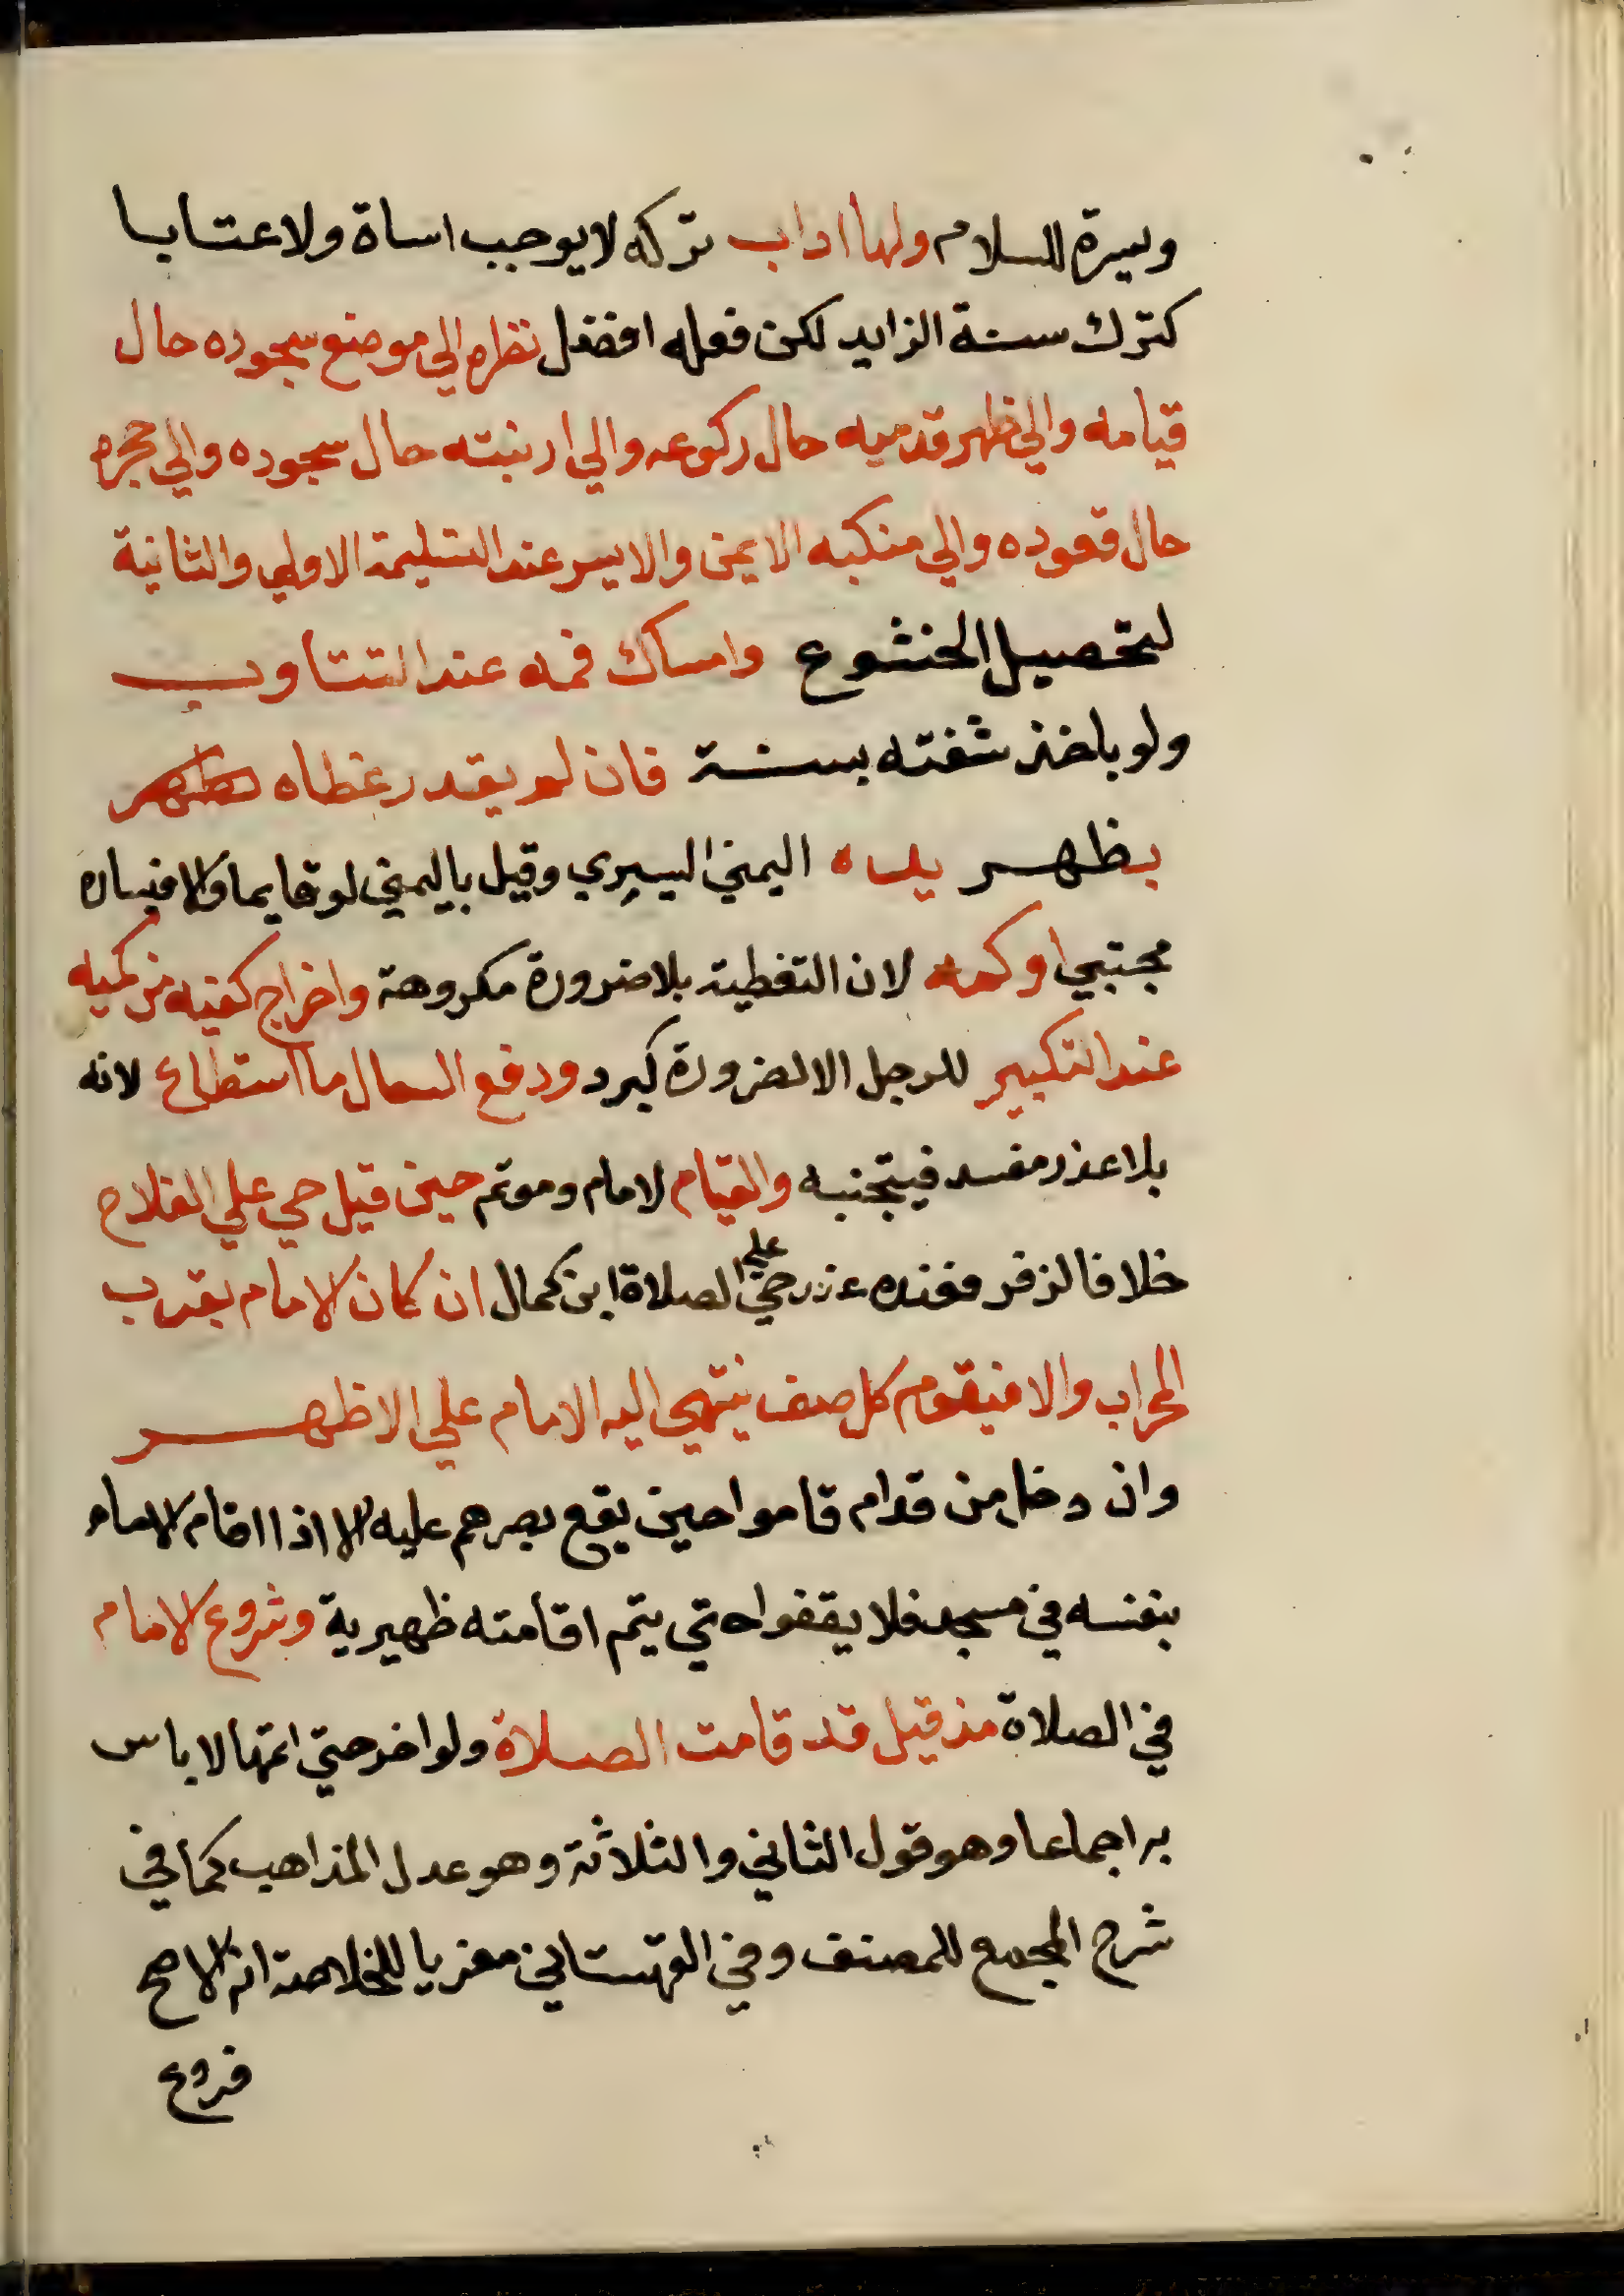 ويسرة للسلام ولها اداب تركه لا يوجب اساة ولا عتابا
كترك سنة الزايد لكن فعله افضل نظره الي موضع سجوده حال
قيامه والي ظهر قدميه حال ركوعه والي ارنبته حال سجوده والي حجره
حال قعوده والي منكبه الايمن والايسر عند التسليمة الاولي والثانية
لتحصيل الخشوع وامساك فمه عند التتاوب
ولو باخذ شفته بسنة فان لم يقدر غطاه
بظهر يده اليمني اليسري وقيل باليمني لو قايما والا فيساره
مجتبي او كمه لان التغطية بلا ضرورة مكروهة واخراج كفيه من كميه
عند التكبير للرجل الا لضرورة كبرد ودفع السعال ما استطاع لانه
بلا عذر مفسد فيتجنبه والقيام لامام وموتم حين قيل حي علي الفلاح
خلافا لزفر فعنده عند حي علي الصلاة ابن كمال ان كان الامام بقرب
المحراب والا فيقوم كل صف ينتهي اليه الامام علي الاظهر
وان دخل من قدام قاموا حين يقع بصرهم عليه الا اذا اقام الامام
بنفسه في مسجد فلا يقفوا حتي يتم اقامته ظهيرية وشروع الامام
في الصلاة مذ قيل قد قامت الصلاة ولو اخر حتي اتمها لا باس
به اجماعا وهو قول الثاني والثلاثة وهو عدل المذاهب كما في
شرح المجمع للمصنف وفي القهستاني معزيا للخلاصة انه الاصح
فروع